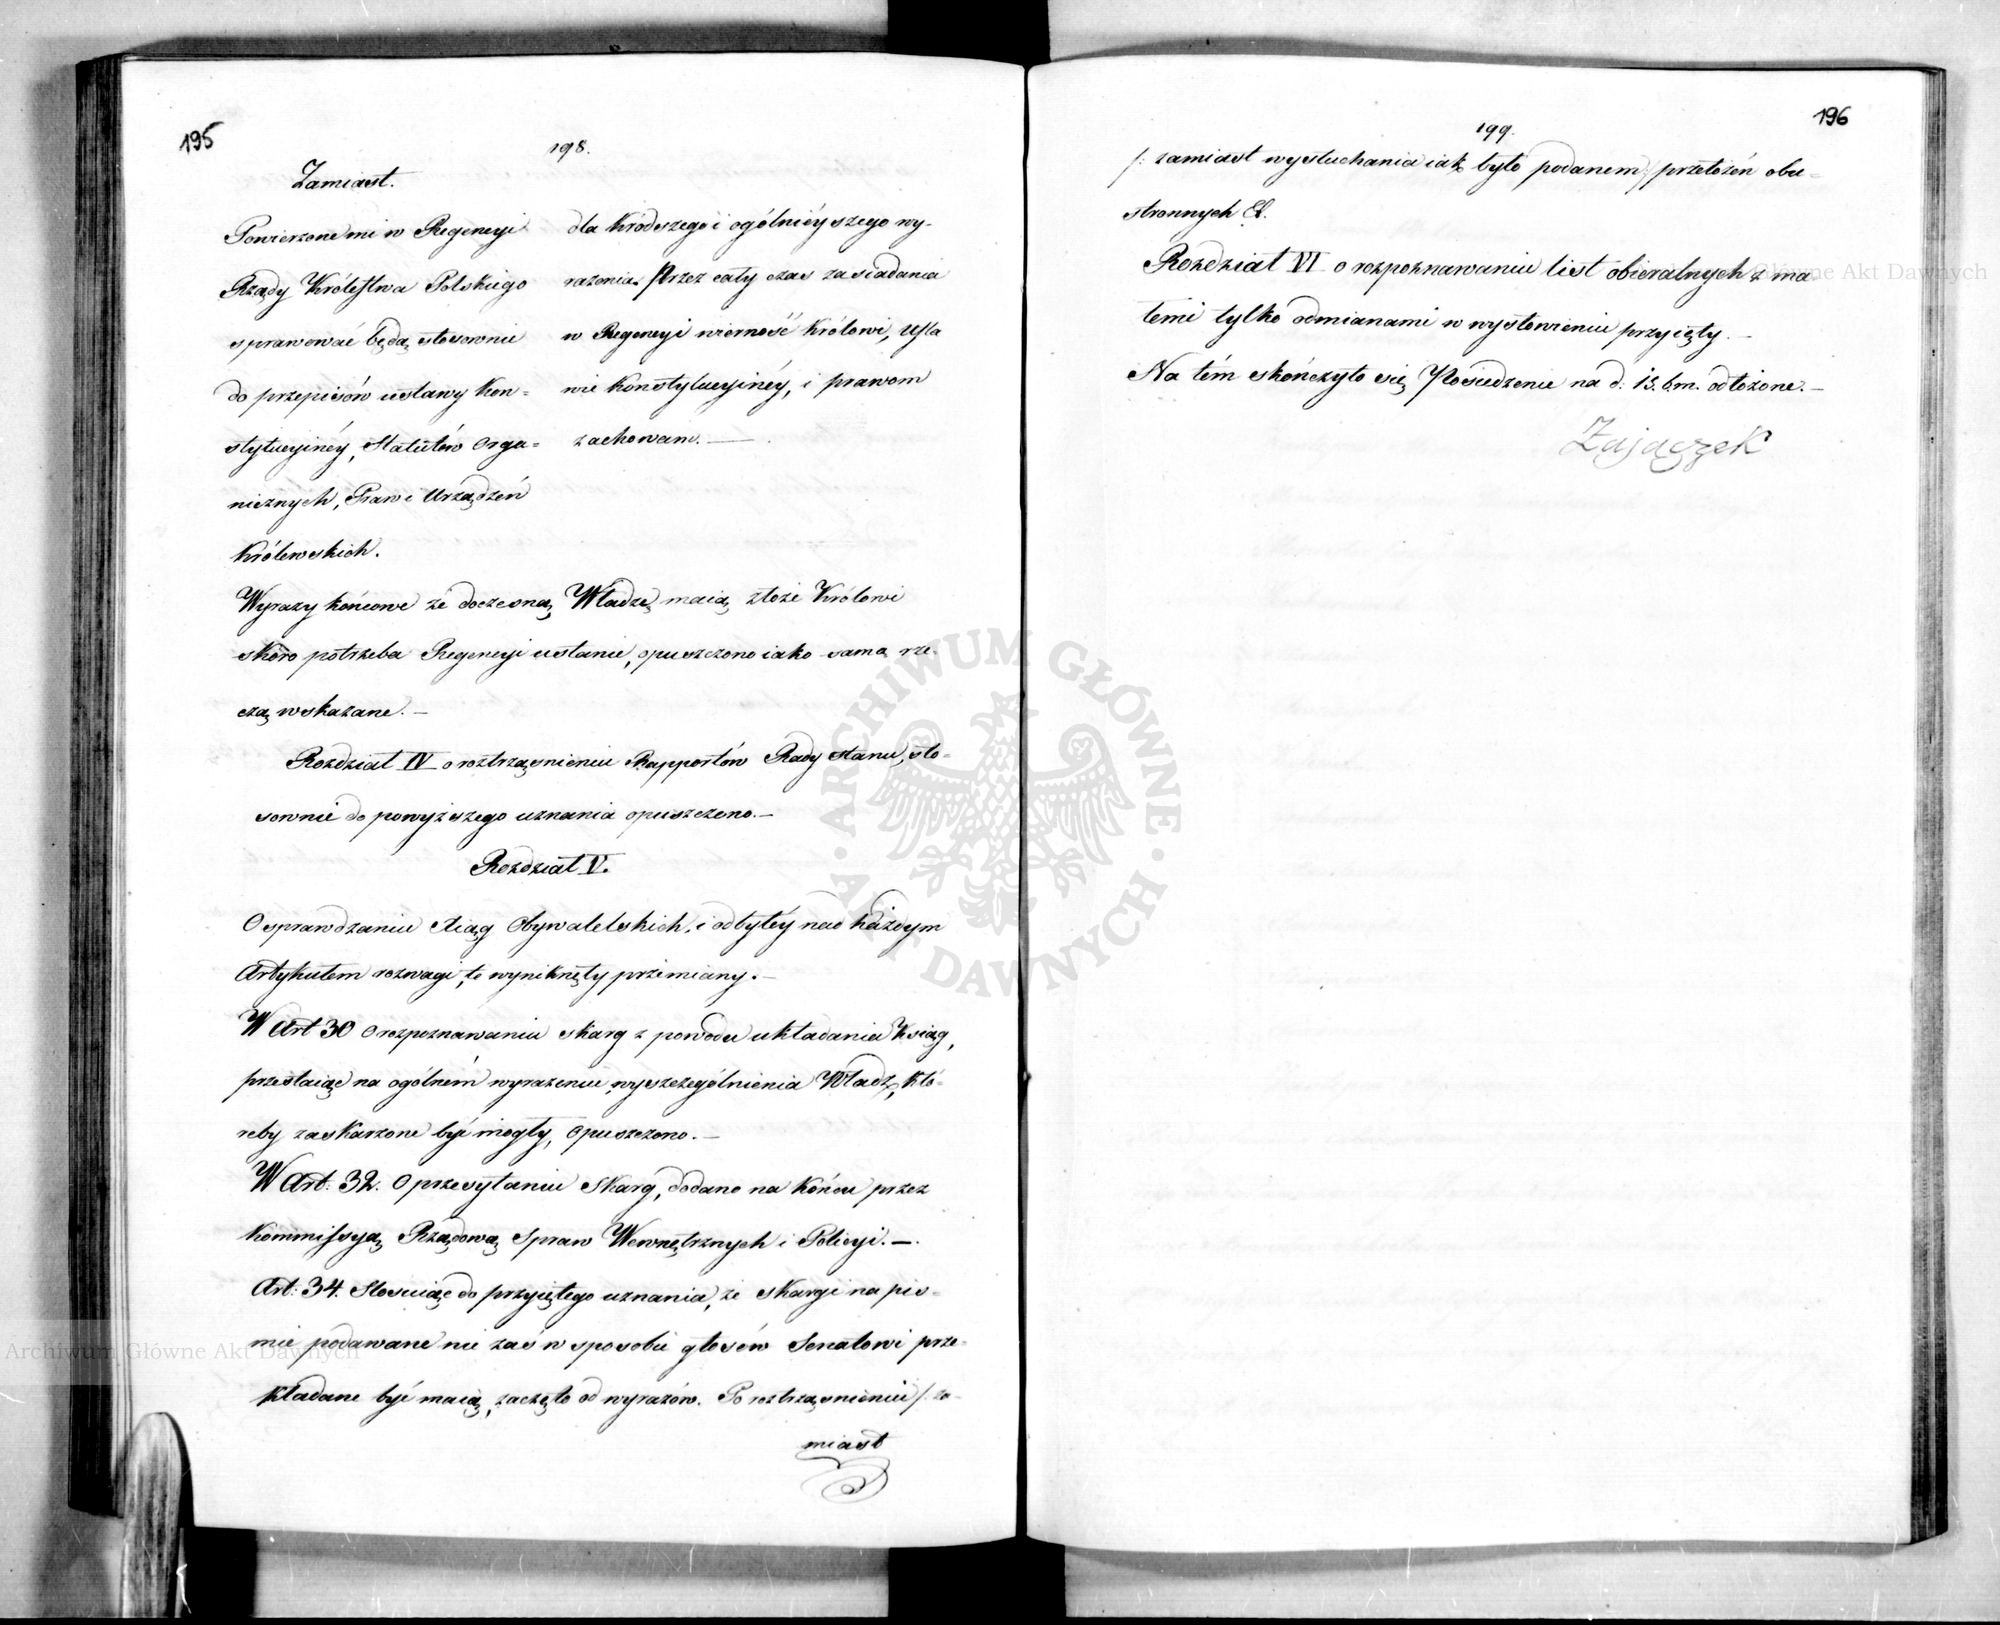 195
198.
Zamiast.
Powierzone mi w Regencyi
Rządy Królestwa Polskiego
sprawować będę stosownie
do przepisów ustawy Kon=
stytucyinéy, Statutów Orga=
nicznych, Praw i Urządzeń
Królewskich.
dla kródszego i ogólniéyszego wy-
rażenia. Przez cały czas zasiadania
w Regencyi wierność Królowi, Usta
wie Konstytucyinéy, i prawom
zachowam. —
Wyrazy końcowe że doczesną Władzę maią złożć Królowi
skoro potrzeba Regencyi ustanie, opuszczono iako samą rze-
czą wskazane. —
Rozdział IV o roztrząśnieniu Rapportów Rady Stanu, sto-
sownie do powyższego uznania opuszczono. —
Rozdział V.
O sprawdzaniu Xiąg Obywatelskich, i odbytéy nad każdym
Artykułem rozwagi, te wyniknęły przemiany. —
W Art 30 O rozpoznawaniu skarg z powodu układania Ksiąg,
przestaiąc na ogólném wyrażeniu, wyszczególnienia Władz, któ-
reby zaskarżone być mogły, opuszczono. —
W Art. 32. O przesyłaniu Skarg, dodano na końcu przez
Kommissyą Rządową Spraw Wewnętrznych i Policyi. —.
Art: 34. Stosuiąc do przyiętego uznania, że skargi na piś-
mie podawane nie zaś w sposobie głosów Senatowi prze-
kładane być maią, zaczęto od wyrazów. Po roztrząśnieniu /: za-
miast
196
199.
/: zamiast wysłuchania iak było podanem :/ przełożeń obu-
stronnych Et.
Rozdział VI o rozpoznawaniu list obieralnych z ma
łemi tylko odmianami w wysłowieniu przyięty. —
Na tém skończyło się Posiedzenie na d. 13. b.m. odłożone. —
Zajączek
ARCHIWUM GŁÓWNE
AKT DAWNYCH
Archiwum Główne Akt Dawnych
Główne Akt Dawnych